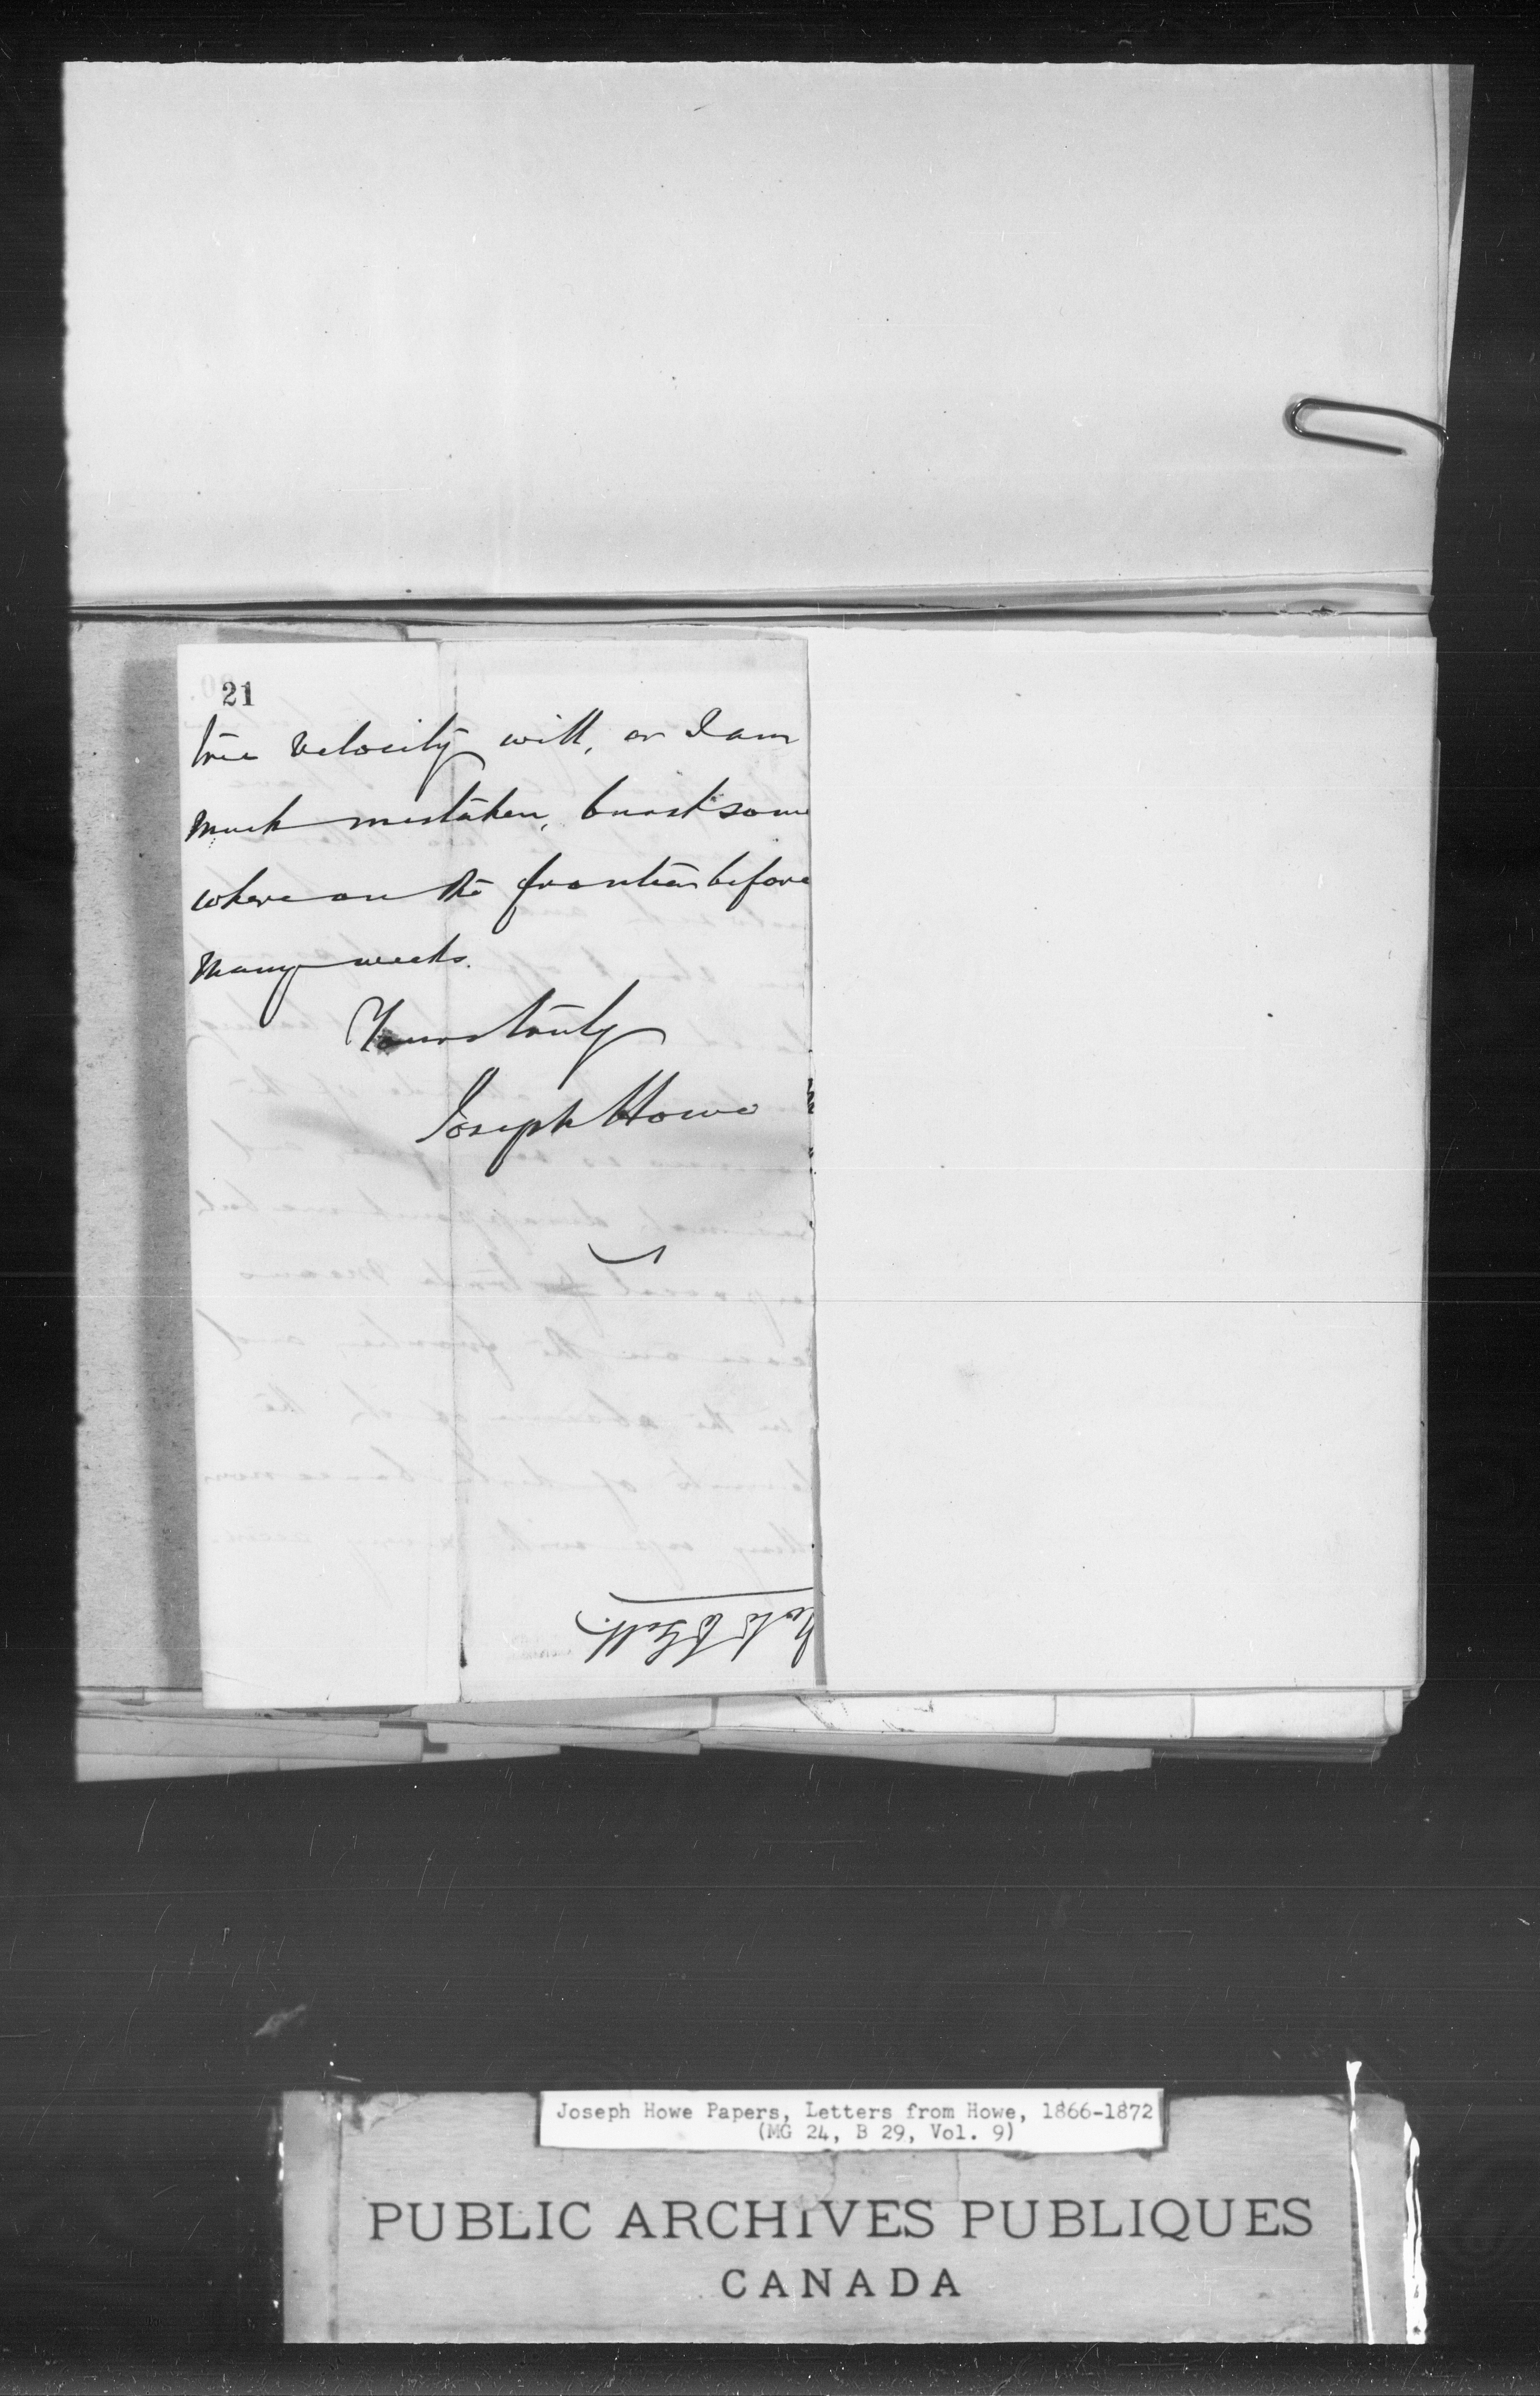 21
tric velocity will, or I am
much mistaken, burst some
where on the frontier before
many weeks.
Yours truly
Joseph Howe
Joseph Howe Papers, Letters from Howe, 1866-1872
(MG 24, B 29, Vol. 9)
PUBLIC ARCHIVES PUBLIQUES
CANADA